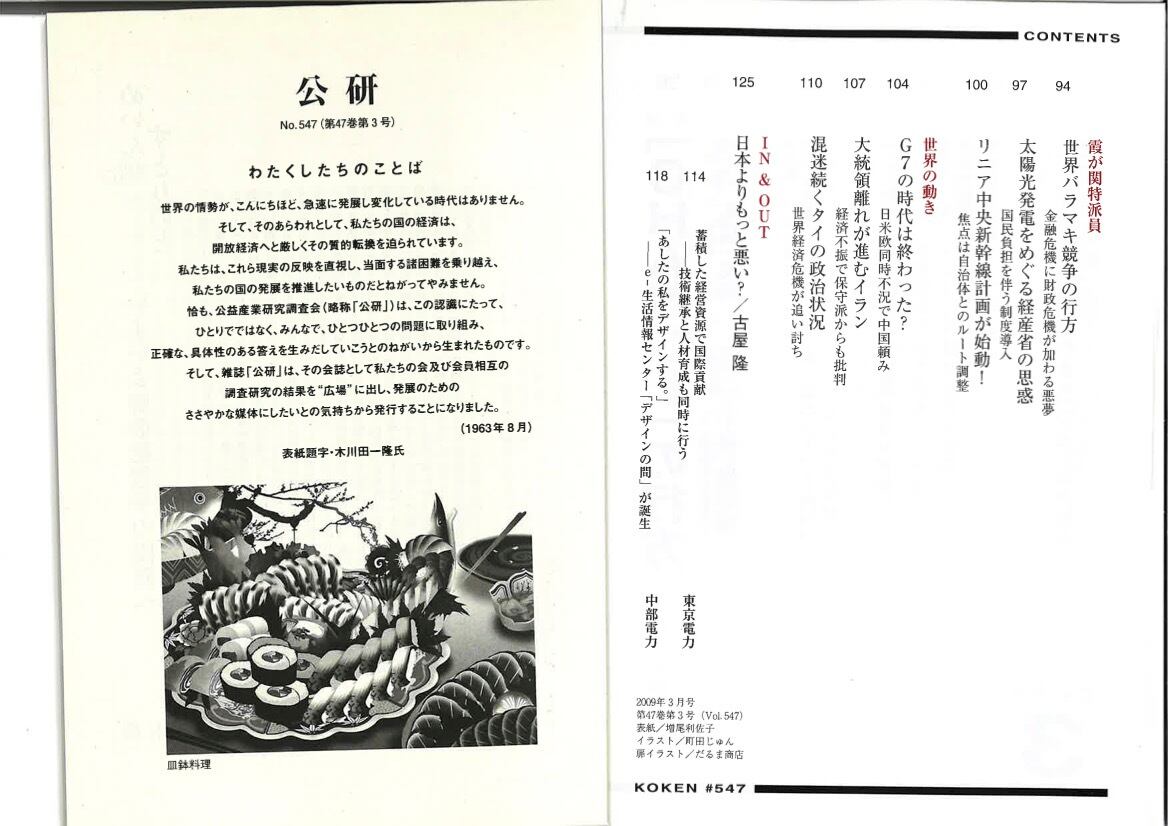 公研
No.547（第47巻第3号）
わたくしたちのことば
世界の情勢が、こんにちほど、急速に発展し変化している時代はありません。
そして、そのあらわれとして、私たちの国の経済は、
開放経済へと厳しくその質的転換を迫られています。
私たちは、これら現実の反映を直視し、当面する諸困難を乗り越え、
私たちの国の発展を推進したいものだとねがってやみません。
恰も、公益産業研究調査会（略称「公研」）は、この認識にたって、
ひとりでではなく、みんなで、ひとつひとつの問題に取り組み、
正確な、具体性のある答えを生みだしていこうとのねがいから生まれたものです。
そして、雑誌「公研」は、その会誌として私たちの会及び会員相互の
調査研究の結果を“広場”に出し、発展のための
ささやかな媒体にしたいとの気持ちから発行することになりました。
（1963年8月）
表紙題字・木川田一隆氏
皿鉢料理
CONTENTS
霞が関特派員
94
世界バラマキ競争の行方
金融危機に財政危機が加わる悪夢
97
太陽光発電をめぐる経産省の思惑
国民負担を伴う制度導入
100
リニア中央新幹線計画が始動！
焦点は自治体とのルート調整
世界の動き
104
G7の時代は終わった？
日米欧同時不況で中国頼み
107
大統領離れが進むイラン
経済不振で保守派からも批判
110
混迷続くタイの政治状況
世界経済危機が追い討ち
IN & OUT
125
日本よりもっと悪い？／古屋 隆
114
蓄積した経営資源で国際貢献
――技術継承と人材育成も同時に行う
東京電力
118
「あしたの私をデザインする。」
――e-生活情報センター「デザインの間」が誕生
中部電力
2009年3月号
第47巻第3号（Vol.547）
表紙／増尾利佐子
イラスト／町田じゅん
扉イラスト／だるま商店
KOKEN #547